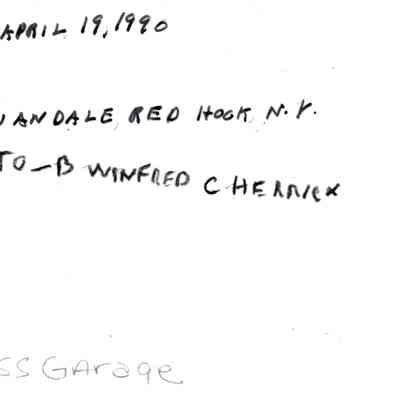 APRIL 19, 1990
ANDALE RED HOOK N.Y.
TO-B WINFRED CHERRICK
SS GArage